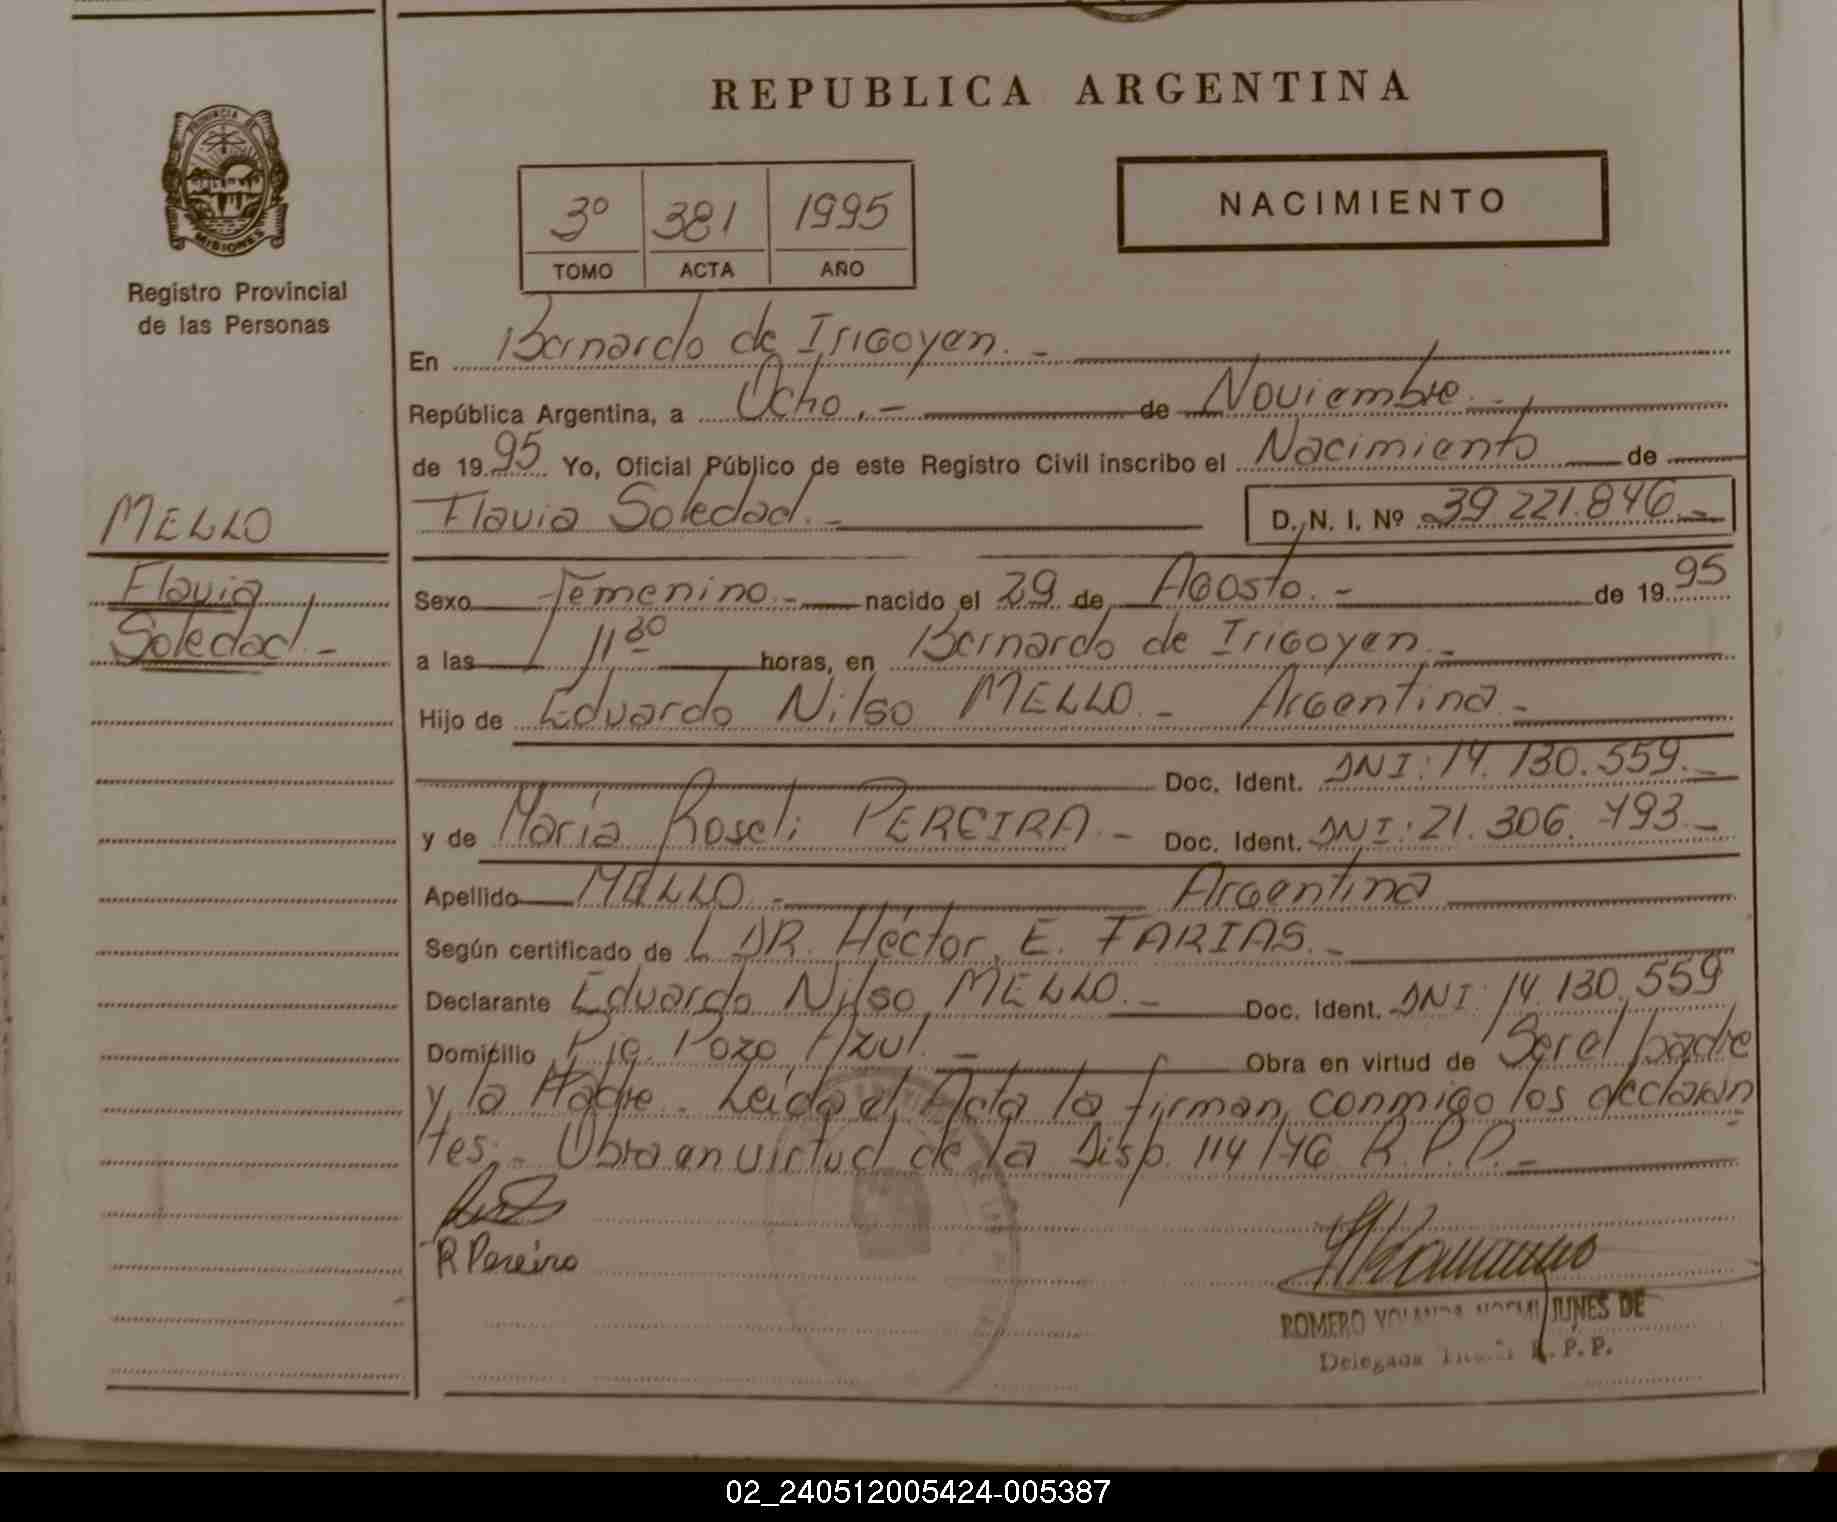 REPUBLICA ARGENTINA
PROVINCIA DE
MISIONES
Registro Provincial
de las Personas
3º 381 1995
TOMO ACTA AÑO
NACIMIENTO
En Bernardo de Irigoyen.-
República Argentina, a Ocho.- de Noviembre.-
de 1995 Yo, Oficial Público de este Registro Civil inscribo el Nacimiento de
MELLO
Flavia Soledad.- D. N. I. Nº 39 221.846.-
Flavia
Soledad.-
Sexo Femenino.- nacido el 29 de Agosto.- de 1995
a las 11 30 horas, en Bernardo de Irigoyen.-
Hijo de Eduardo Nilso MELLO.- Argentina.-
Doc. Ident. DNI: 14.130.559.-
y de María Roseli PEREIRA.- Doc. Ident. DNI: 21.306.793.-
Apellido MELLO.- Argentina
Según certificado de L DR. Héctor E. FARIAS.-
Declarante Eduardo Nilso MELLO.- Doc. Ident. DNI: 14.130.559
Domicilio Pje. Pozo Azul.- Obra en virtud de Ser el padre
y la Madre. Leída el Acta la firman conmigo los declaran
tes.- Obra en virtud de la Disp. 114/76 R.P.P.-
R Pereira
ROMERO YOLANDA NOEMI JUNES DE
Delegada R. P. P.
02_240512005424-005387